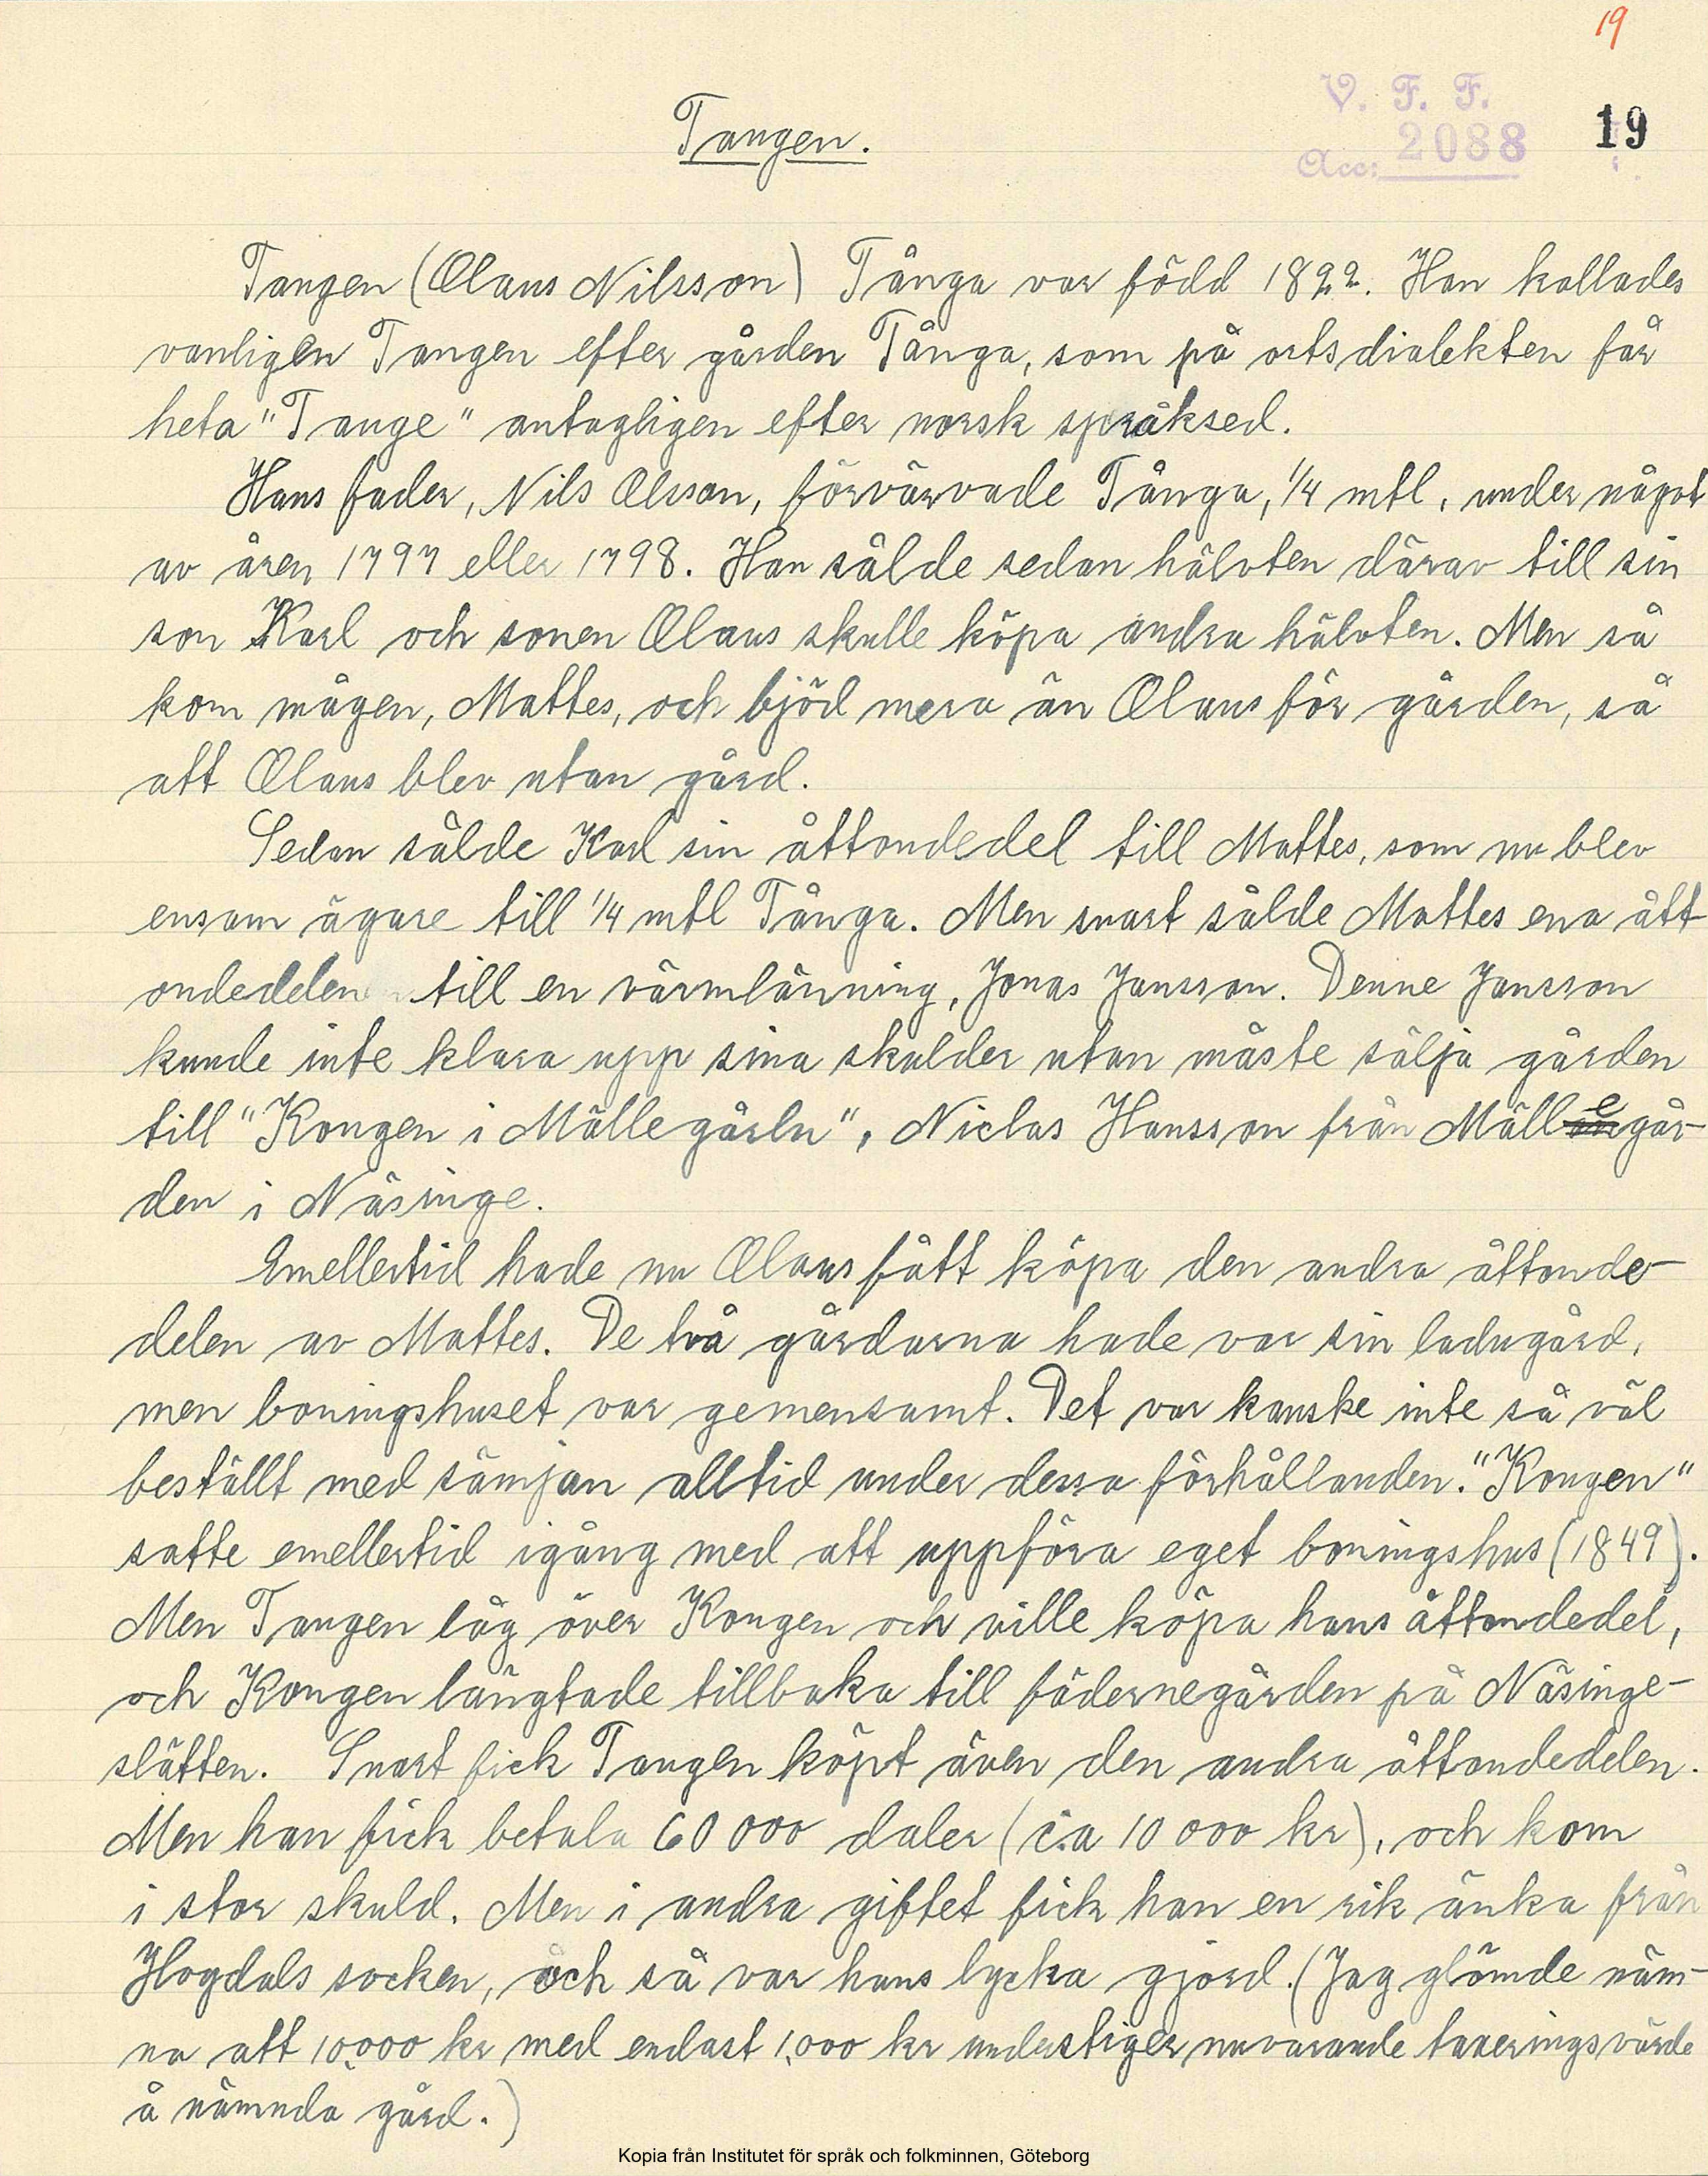 19
V. F. F.
Acc: 2088
19
Tangen.
Tangen (Olaus Nilsson) Tånga var född 1822. Han kallades
vanligen Tangen efter gården Tånga, som på ortsdialekten får
heta "Tange" antagligen efter norsk språksed.
Hans fader, Nils Olsson, förvärvade Tånga, 1/4 mtl, under något
av åren 1797 eller 1798. Han sålde sedan hälvten därav till sin
son Karl och sonen Olaus skulle köpa andra hälvten. Men så
kom mågen, Mattes, och bjöd mera än Olaus för gården, så
att Olaus blev utan gård.
Sedan sålde Karl sin åttondedel till Mattes, som nu blev
ensam ägare till 1/4 mtl Tånga. Men snart sålde Mattes ena ått
ondedelen till en värmlänning, Jonas Jansson. Denne Jansson
kunde inte klara upp sina skulder utan måste sälja gården
till "Kongen i Mällegårln", Niclas Hansson från Mällegår-
den i Näsinge.
Emellertid hade nu Olaus fått köpa den andra åttonde-
delen av Mattes. De två gårdarna hade var sin ladugård,
men boningshuset var gemensamt. Det var kanske inte så väl
beställt med sämjan alltid under dessa förhållanden. "Kongen"
satte emellertid igång med att uppföra eget boningshus (1849).
Men Tangen låg över Kongen och ville köpa hans åttondedel,
och Kongen längtade tillbaka till fädernegården på Näsinge-
slätten. Snart fick Tangen köpt även den andra åttondedelen.
Men han fick betala 60 000 daler (c:a 10 000 kr), och kom
i stor skuld. Men i andra giftet fick han en rik änka från
Hogdals socken, och så var hans lycka gjord. (Jag glömde näm-
na att 10.000 kr med endast 1.000 kr understiger nuvarande taxeringsvärde
å nämnda gård.)
Kopia från Institutet för språk och folkminnen, Göteborg